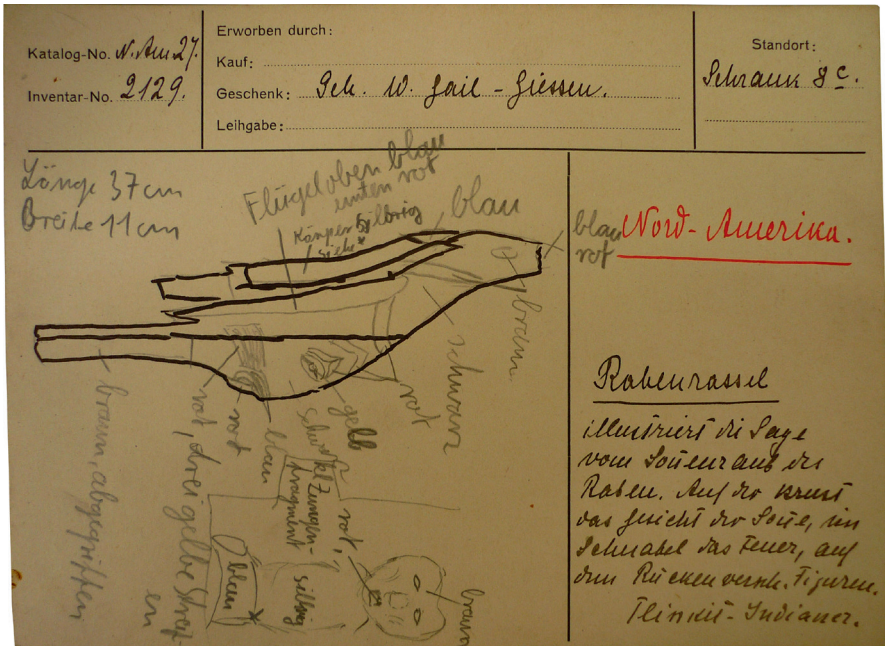 Katalog-No. N. Am 27.
Inventar-No. 2129.
Erworben durch:
Kauf:
Geschenk: Geh. W. Gail - Giessen.
Leihgabe:
Standort:
Schrank 8 c.
Länge 37 cm
Breite 11 cm
Flügel oben blau
unten rot
Körper silbrig
siehe*
blau
blau
rot
braun
schwarz
rot
gelb
blau
rot
rot, drei gelbe Streif-
en
braun, abgegriffen
Zungen-
fragment
rot,
silbrig
blau
braun
Nord-Amerika.
Rabenrassel
illustriert die Sage
vom Sonnenraub des
Raben. Auf der Brust
das Gesicht der Sonne, im
Schnabel das Feuer, auf
dem Rücken versch. Figuren.
Tlinkit-Indianer.